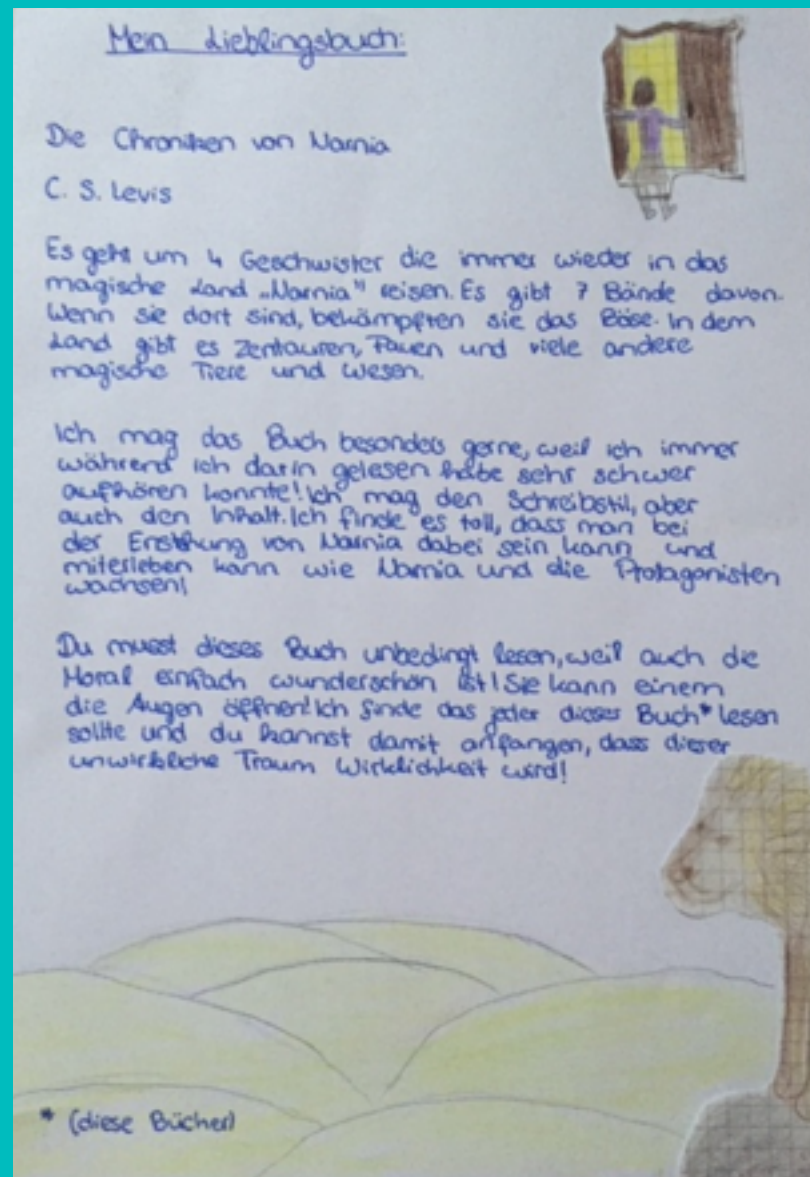 Mein Lieblingsbuch:
Die Chroniken von Narnia
C. S. Levis
Es geht um 4 Geschwister die immer wieder in das
magische Land „Narnia" reisen. Es gibt 7 Bände davon.
Wenn sie dort sind, bekämpfen sie das Böse. In dem
Land gibt es Zentauren, Faven und viele andere
magische Tiere und Wesen.
Ich mag das Buch besonders gerne, weil ich immer
während ich darin gelesen habe sehr schwer
aufhören konnte! Ich mag den Schreibstil, aber
auch den Inhalt. Ich finde es toll, dass man bei
der von Narnia dabei sein kann und
miterleben kann wie Narnia und die Protagonisten
wachsen!
Du musst dieses Buch unbedingt lesen, weil auch die
Moral einfach wunderschön ist! Sie kann einem
die Augen öffnen! Ich finde das jeder dieses Buch* lesen
sollte und du kannst damit anfangen, dass dieser
unwirkliche Traum Wirklichkeit wird!
* (diese Bücher)